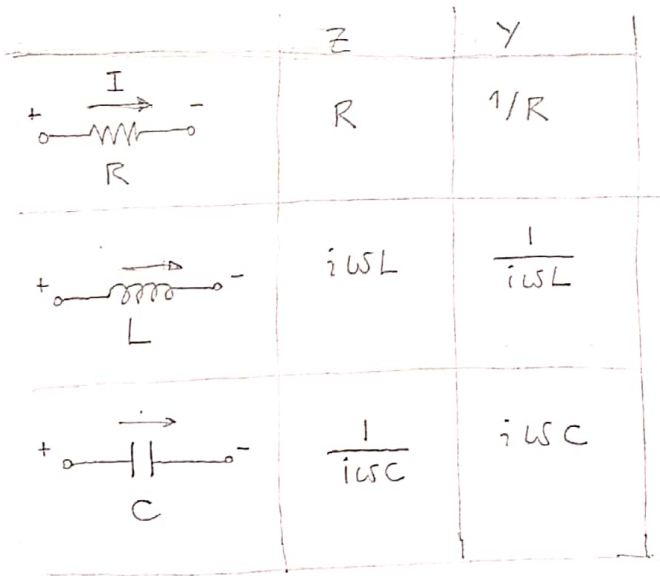 Z Y
I
+ -
R
R 1/R
+ -
L
iωL 1/iωL
+ -
C
1/iωC iωC